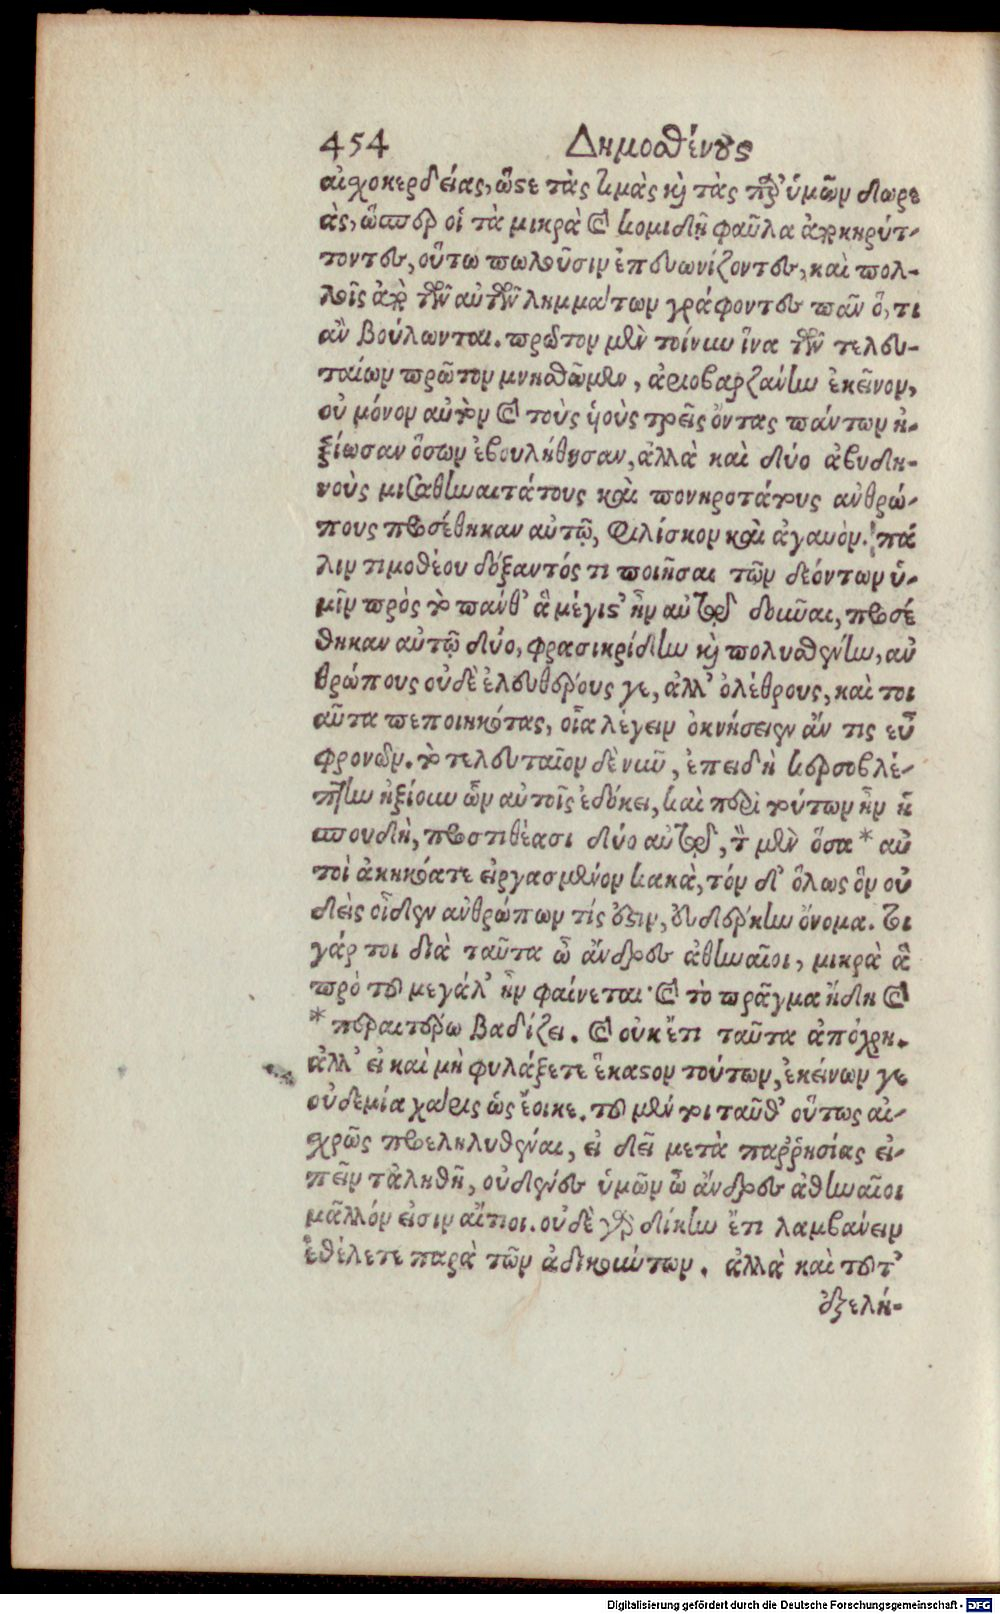 454 Δημοσθένους
αἰσχροκερδείας, ὥστε τὰς τιμὰς καὶ τὰς παρ' ὑμῶν δωρε
ὰς, ὥσπερ οἱ τὰ μικρὰ καὶ κομιδῇ φαῦλα ἀποκηρύτ-
τοντες, οὕτω πωλοῦσιν ἐπευωνίζοντες, καὶ πολ-
λοῖς ἀπὸ τῶν αὐτῶν λημμάτων γράφοντες πᾶν ὅ, τι
ἂν βούλωνται. πρῶτον μὲν τοίνυν ἵνα τῶν τελευ-
ταίων πρῶτον μνησθῶμεν, ἀριοβαρζάνην ἐκεῖνον,
οὐ μόνον αὐτὸν καὶ τοὺς ὑοὺς τρεῖς ὄντας πάντων ἠ-
ξίωσαν ὅσων ἐβουλήθησαν, ἀλλὰ καὶ δύο ἀβυδη-
νοὺς μισαθηναιοτάτους καὶ πονηροτάτους ἀνθρώ-
πους προσέθηκαν αὐτῷ, φιλίσκον καὶ ἀγαυόν. πά
λιν τιμοθέου δόξαντός τι ποιῆσαι τῶν δεόντων ὑ-
μῖν πρὸς τὸ πάνθ' ἃ μέγιστ' ἦν αὐτῷ δοῦναι, προσέ
θηκαν αὐτῷ δύο, φρασικρίδην καὶ πολυσθένην, ἀν
θρώπους οὐδὲ ἐλευθέρους γε, ἀλλ' ὀλέθρους, καὶ τοι
αῦτα πεποιηκότας, οἷα λέγειν ὀκνήσειεν ἄν τις εὖ
φρονῶν. τὸ τελευταῖον δὲ νῦν, ἐπειδὴ κερσοβλέ-
πτην ἠξίουν ὧν αὐτοῖς ἐδόκει, καὶ περὶ τούτων ἦν ἡ
σπουδὴ, προστιθέασι δύο αὐτῷ, τὸν μὲν ὅσα * αὐ
τοὶ ἀκηκόατε εἰργασμένον κακὰ, τόν δ' ὅλως ὃν οὐ
δεὶς οἶδεν ἀνθρώπων τίς ἐστιν, εὐδέρκην ὄνομα. τι
γάρ τοι διὰ ταῦτα ὦ ἄνδρες ἀθηναῖοι, μικρὰ ἃ
πρὸ τοῦ μεγάλ' ἦν φαίνεται· καὶ τὸ πρᾶγμα ἤδη καὶ
* περαιτέρω βαδίζει. καὶ οὐκ ἔτι ταῦτα ἀπόχρη.
ἀλλ' εἰ καὶ μὴ φυλάξετε ἕκαστον τούτων, ἐκείνων γε
οὐδεμία χάρις ὡς ἔοικε. τοῦ μέν τοι ταῦθ' οὕτως αἰ-
σχρῶς προεληλυθέναι, εἰ δεῖ μετὰ παῤῥησίας εἰ-
πεῖν τἀληθῆ, οὐδένες ὑμῶν ὦ ἄνδρες ἀθηναῖοι
μᾶλλόν εἰσιν αἴτιοι. οὐδὲ γὰρ δίκην ἔτι λαμβάνειν
ἐθέλετε παρὰ τῶν ἀδικούντων. ἀλλὰ καὶ τοῦτ'
ἐξελή-
Digitalisierung gefördert durch die Deutsche Forschungsgemeinschaft - DFG